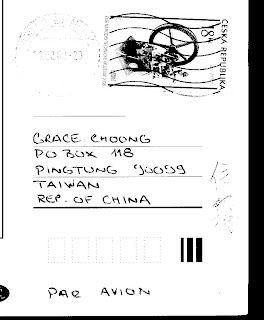 ČESKÁ REPUBLIKA
GRACE CHOONG
PO BOX 118
PINGTUNG 90099
TAIWAN
REP. OF CHINA
PAR AVION